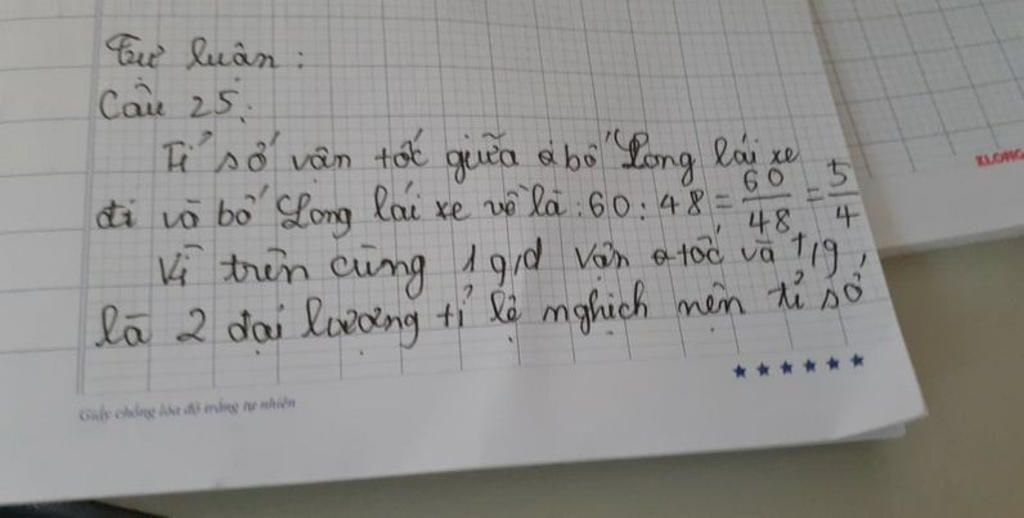 Tự luận:
Câu 25:
Tỉ số vận tốc giữa bố Long lái xe
đi và bố Long lái xe về là: 60 : 48 = 60/48 = 5/4
Vì trên cùng 1 qđ vận tốc và t/g,
là 2 đại lượng tỉ lệ nghịch nên tỉ số
★ ★ ★ ★ ★ ★
Giấy chống lóa độ trắng tự nhiên
KLONG